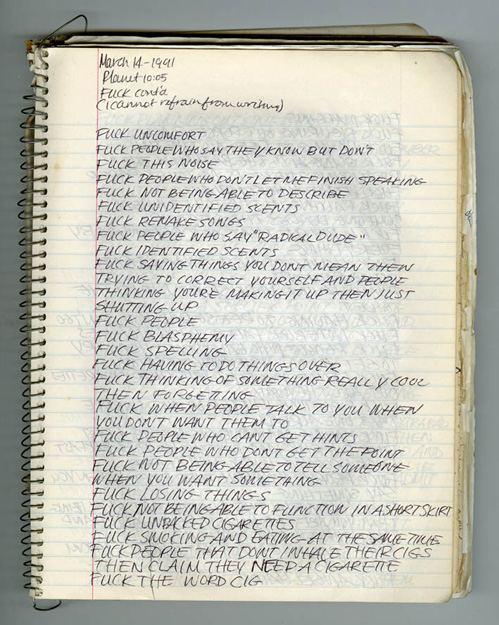 March 14-1991
Planet 10:05
FUCK cont'd
(i cannot refrain from writing)
FUCK UNCOMFORT
FUCK PEOPLE WHO SAY THEY KNOW BUT DON'T
FUCK THIS NOISE
FUCK PEOPLE WHO DON'T LET ME FINISH SPEAKING
FUCK NOT BEING ABLE TO DESCRIBE
FUCK UNIDENTIFIED SCENTS
FUCK REMAKE SONGS
FUCK PEOPLE WHO SAY "RADICAL DUDE"
FUCK IDENTIFIED SCENTS
FUCK SAYING THINGS YOU DONT MEAN THEN
TRYING TO CORRECT YOURSELF AND PEOPLE
THINKING YOU'RE MAKING IT UP THEN JUST
SHUTTING UP
FUCK PEOPLE
FUCK BLASPHEMY
FUCK SPELLING
FUCK HAVING TO DO THINGS OVER
FUCK THINKING OF SOMETHING REALLY COOL
THEN FORGETTING
FUCK WHEN PEOPLE TALK TO YOU WHEN
YOU DONT WANT THEM TO
FUCK PEOPLE WHO CANT GET HINTS
FUCK PEOPLE WHO DONT GET THE POINT
FUCK NOT BEING ABLE TO TELL SOMEONE
WHEN YOU WANT SOMETHING
FUCK LOSING THINGS
FUCK NOT BEING ABLE TO FUNCTION IN A SHORT SKIRT
FUCK UNPACKED CIGARETTES
FUCK SMOKING AND EATING AT THE SAME TIME
FUCK PEOPLE THAT DONT INHALE THEIR CIGS
THEN CLAIM THEY NEED A CIGARETTE
FUCK THE WORD CIG